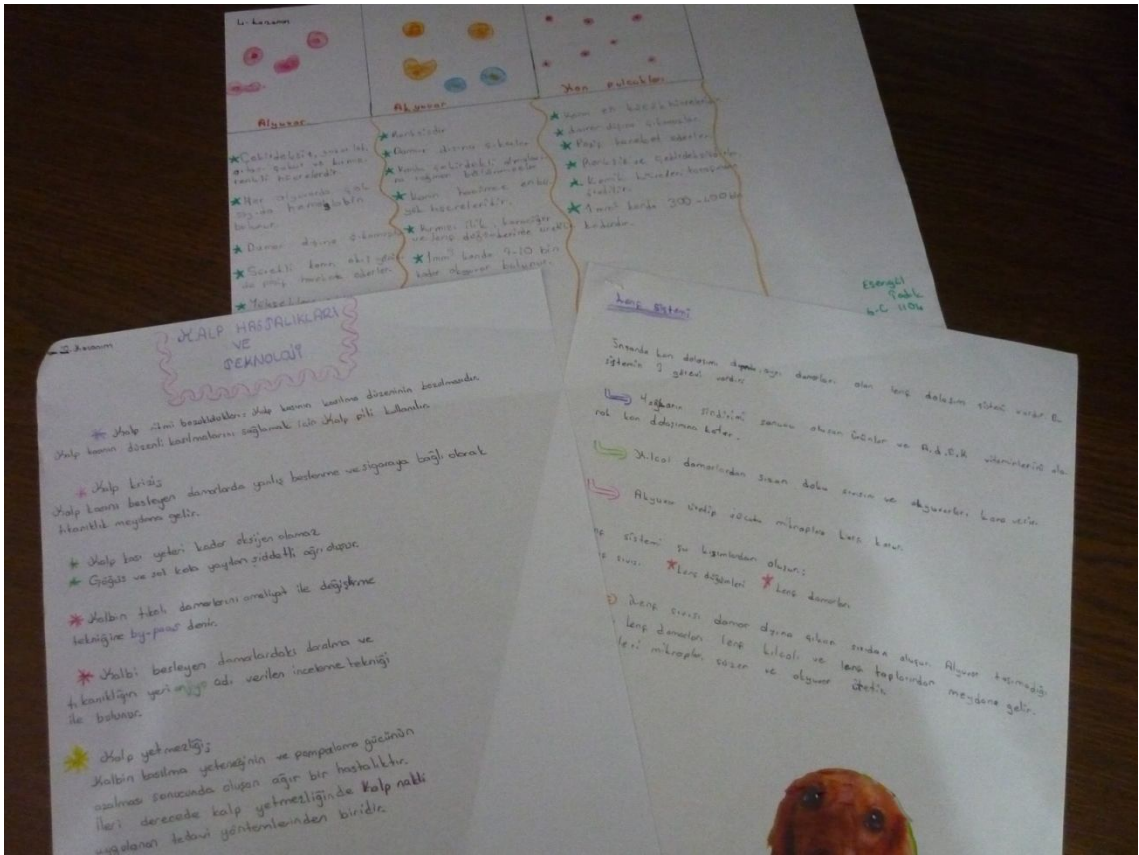 4. kısım
Alyuvar
Akyuvar
Kan pulcukları
★ Çekirdeksiz, yuvarlak,
renkli hücrelerdir.
★ Her alyuvarda çok
sayıda hemoglobin
bulunur.
★ Damar dışına çıkamaz
★ Sürekli kanın akış yönün
de pasif hareket ederler.
★ Renksizdir
★ Damar dışına çıkarlar
★ Kanın hacimce en bü
yük hücreleridir.
★ Kırmızı ilik, karaciğer
ve lenf düğümlerinde üretilir
★ 1mm³ kanda 7-10 bin
kadar akyuvar bulunur.
★ Kanın en küçük hücreleridir
★ Damar dışına çıkamazlar
★ Pasif hareket ederler
★ Renksiz ve çekirdeksizdirler
★ Kemik
★ 1mm³ kanda 300-400 bin
kadardır.
Esengül
6-C 1106
KALP HASTALIKLARI
VE
TEKNOLOJİ
Kalp ritmi bozuklukları; Kalp kasının kasılma düzeninin bozulmasıdır.
Kalp kasının düzenli kasılmalarını sağlamak için Kalp pili kullanılır.
Kalp krizi;
Kalp kasını besleyen damarlarda yanlış beslenme ve sigaraya bağlı olarak
tıkanıklık meydana gelir.
Kalp kası yeteri kadar oksijen alamaz
Göğüs ve sol kola yayılan şiddetli ağrı oluşur.
Kalbin tıkalı damarlarını ameliyat ile değiştirme
tekniğine by-pass denir.
Kalbi besleyen damarlardaki daralma ve
tıkanıklığın yeri anjiyo adı verilen inceleme tekniği
ile bulunur.
Kalp yetmezliği;
Kalbin kasılma yeteneğinin ve pompalama gücünün
azalması sonucunda oluşan ağır bir hastalıktır.
İleri derecede kalp yetmezliğinde kalp nakli
uygulanan tedavi yöntemlerinden biridir.
Lenf Sistemi
İnsanda kan dolaşımı dışında, ayrı damarları olan lenf dolaşım sistemi vardır. Bu
sistemin 3 görevi vardır:
Yağların sindirimi sonucu oluşan ürünler ve A,D,E,K vitaminlerini ala
rak kan dolaşımına katar.
Kılcal damarlardan sızan doku sıvısını ve akyuvarları kana verir.
Akyuvar üretip vücudu mikroplara karşı korur.
sistemi şu kısımlardan oluşur:
sıvısı *Lenf düğümleri *Lenf damarları
Lenf sıvısı damar dışına çıkan sıvıdan oluşur. Alyuvar taşımadığı
lenf damarları lenf kılcalı ve lenf toplarından meydana gelir.
leri mikropları süzer ve akyuvar üretir.